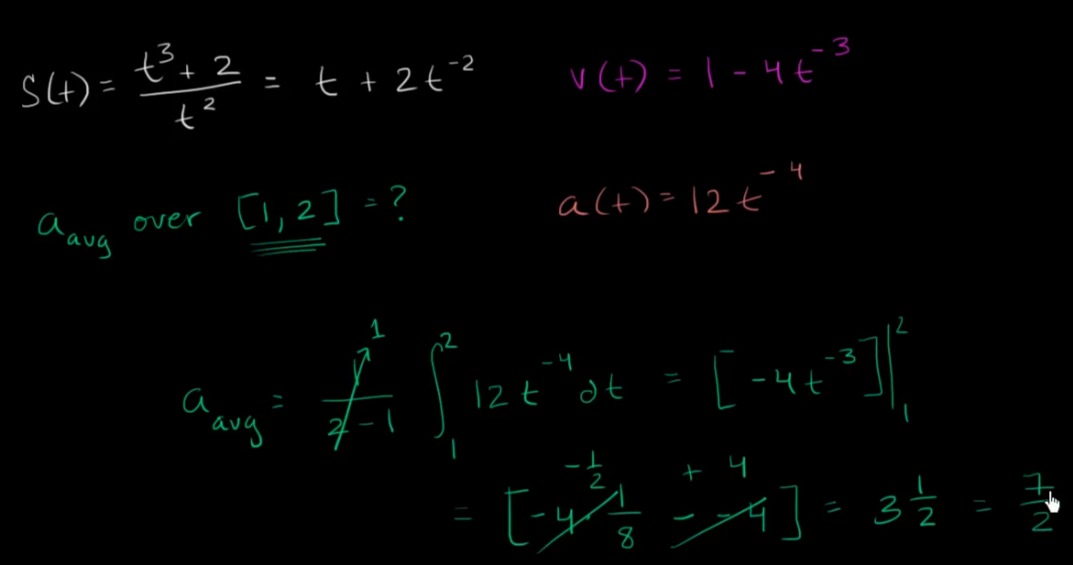 S(t) = (t³ + 2)/t² = t + 2t⁻²
v(t) = 1 - 4t⁻³
a_avg over [1, 2] = ?
a(t) = 12t⁻⁴
a_avg = 1/(2 - 1) 1 ∫₁² 12t⁻⁴ ∂t = [-4t⁻³]|₁²
= [-4 · 1/8 - -4] -1/2 + 4 = 3 1/2 = 7/2